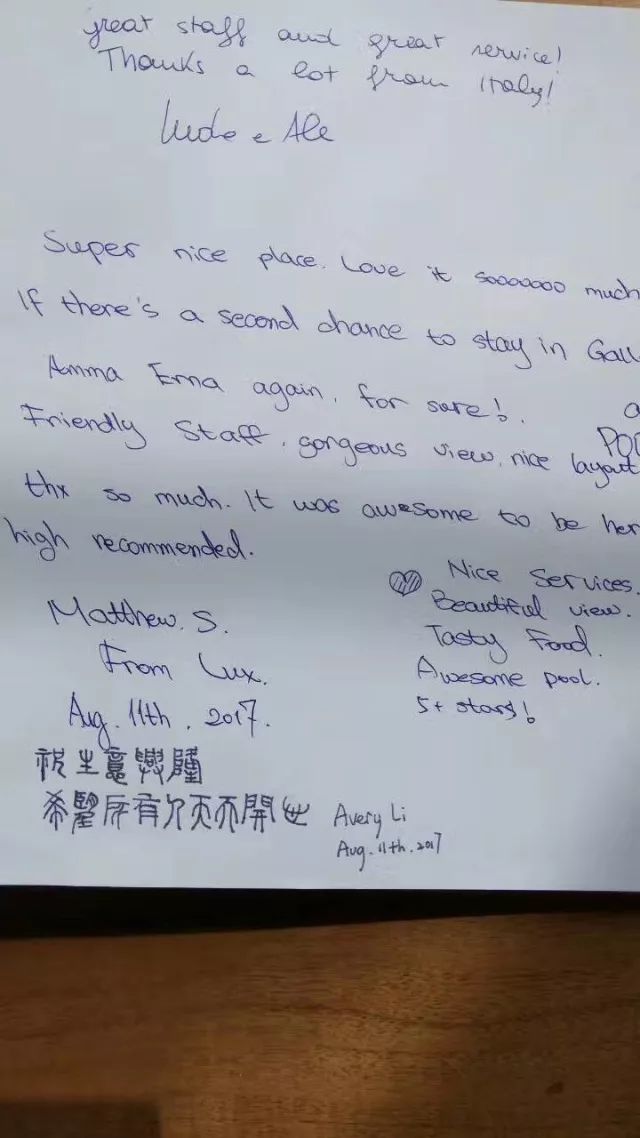 great staff and great service!
Thanks a lot from Italy!
Ludo e Ale
Super nice place. Love it sooooooo much
If there's a second chance to stay in Gall
Amma Erna again, for sure!.
a
Friendly Staff, gorgeous view, nice layout
POO
thx so much. It was awesome to be her
high recommended.
Nice Services.
Beautiful view.
Tasty Food.
Awesome pool.
5+ stars!
Matthew. S.
From Lux.
Aug. 11th. 2017.
祝生意興隆
希望所有人天天開心
Avery Li
Aug. 11th. 2017